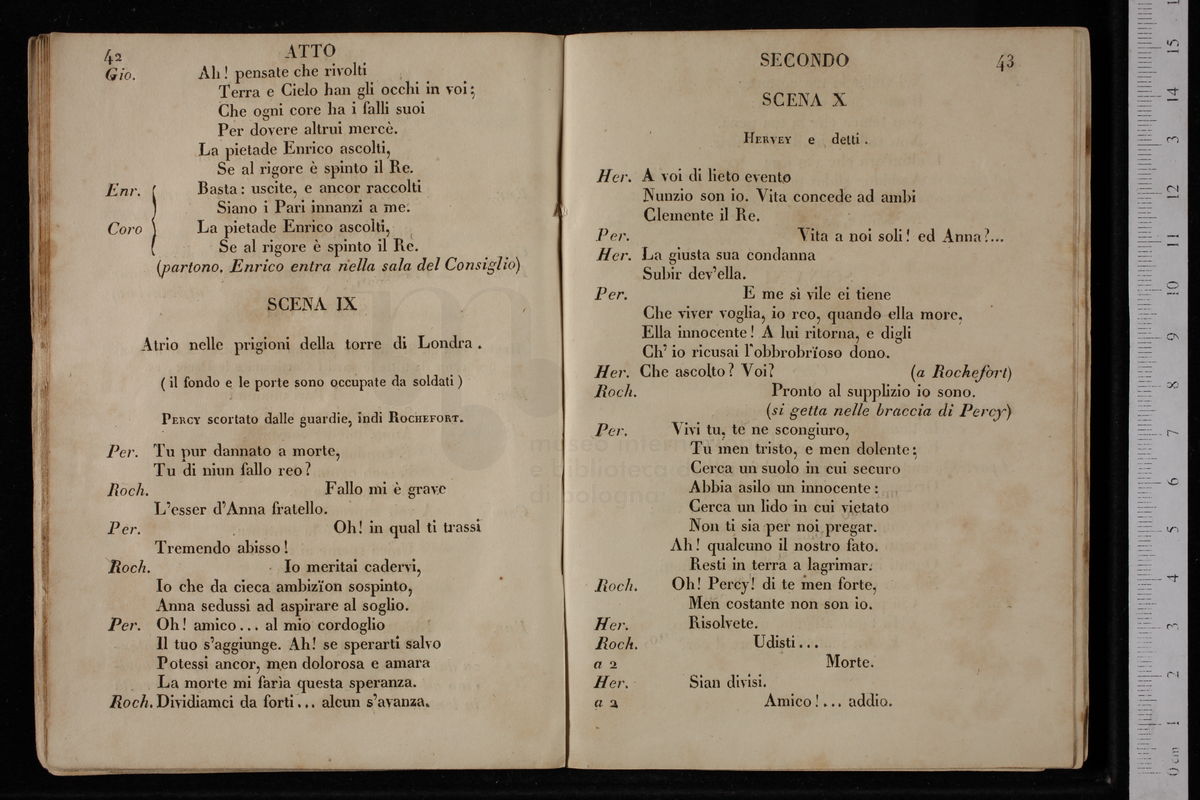 42 ATTO
Gio. Ah! pensate che rivolti
Terra e Cielo han gli occhi in voi;
Che ogni core ha i falli suoi
Per dovere altrui mercè.
La pietade Enrico ascolti,
Se al rigore è spinto il Re.
Enr. Basta: uscite, e ancor raccolti
Siano i Pari innanzi a me.
Coro La pietade Enrico ascolti,
Se al rigore è spinto il Re.
(partono. Enrico entra nella sala del Consiglio)
SCENA IX
Atrio nelle prigioni della torre di Londra.
(il fondo e le porte sono occupate da soldati)
PERCY scortato dalle guardie, indi ROCHEFORT.
Per. Tu pur dannato a morte,
Tu di niun fallo reo?
Roch. Fallo mi è grave
L'esser d'Anna fratello.
Per. Oh! in qual ti trassi
Tremendo abisso!
Roch. Io meritai cadervi,
Io che da cieca ambizïon sospinto,
Anna sedussi ad aspirare al soglio.
Per. Oh! amico... al mio cordoglio
Il tuo s'aggiunge. Ah! se sperarti salvo
Potessi ancor, men dolorosa e amara
La morte mi farìa questa speranza.
Roch. Dividiamci da forti... alcun s'avanza.
SECONDO 43
SCENA X
HERVEY e detti.
Her. A voi di lieto evento
Nunzio son io. Vita concede ad ambi
Clemente il Re.
Per. Vita a noi soli! ed Anna?...
Her. La giusta sua condanna
Subir dev'ella.
Per. E me sì vile ei tiene
Che viver voglia, io reo, quando ella more,
Ella innocente! A lui ritorna, e digli
Ch' io ricusai l'obbrobrïoso dono.
Her. Che ascolto? Voi? (a Rochefort)
Roch. Pronto al supplizio io sono.
(si getta nelle braccia di Percy)
Per. Vivi tu, te ne scongiuro,
Tu men tristo, e men dolente;
Cerca un suolo in cui securo
Abbia asilo un innocente:
Cerca un lido in cui vietato
Non ti sia per noi pregar.
Ah! qualcuno il nostro fato.
Resti in terra a lagrimar.
Roch. Oh! Percy! di te men forte,
Men costante non son io.
Her. Risolvete.
Roch. Udisti...
a 2 Morte.
Her. Sian divisi.
a 2 Amico!... addio.